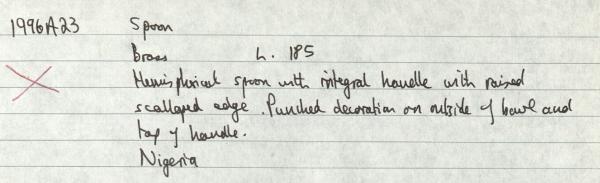 1996A23 Spoon
Brass L. 185
Hemispherical spoon with integral handle with raised
scalloped edge. Punched decoration on outside of bowl and
top of handle.
Nigeria